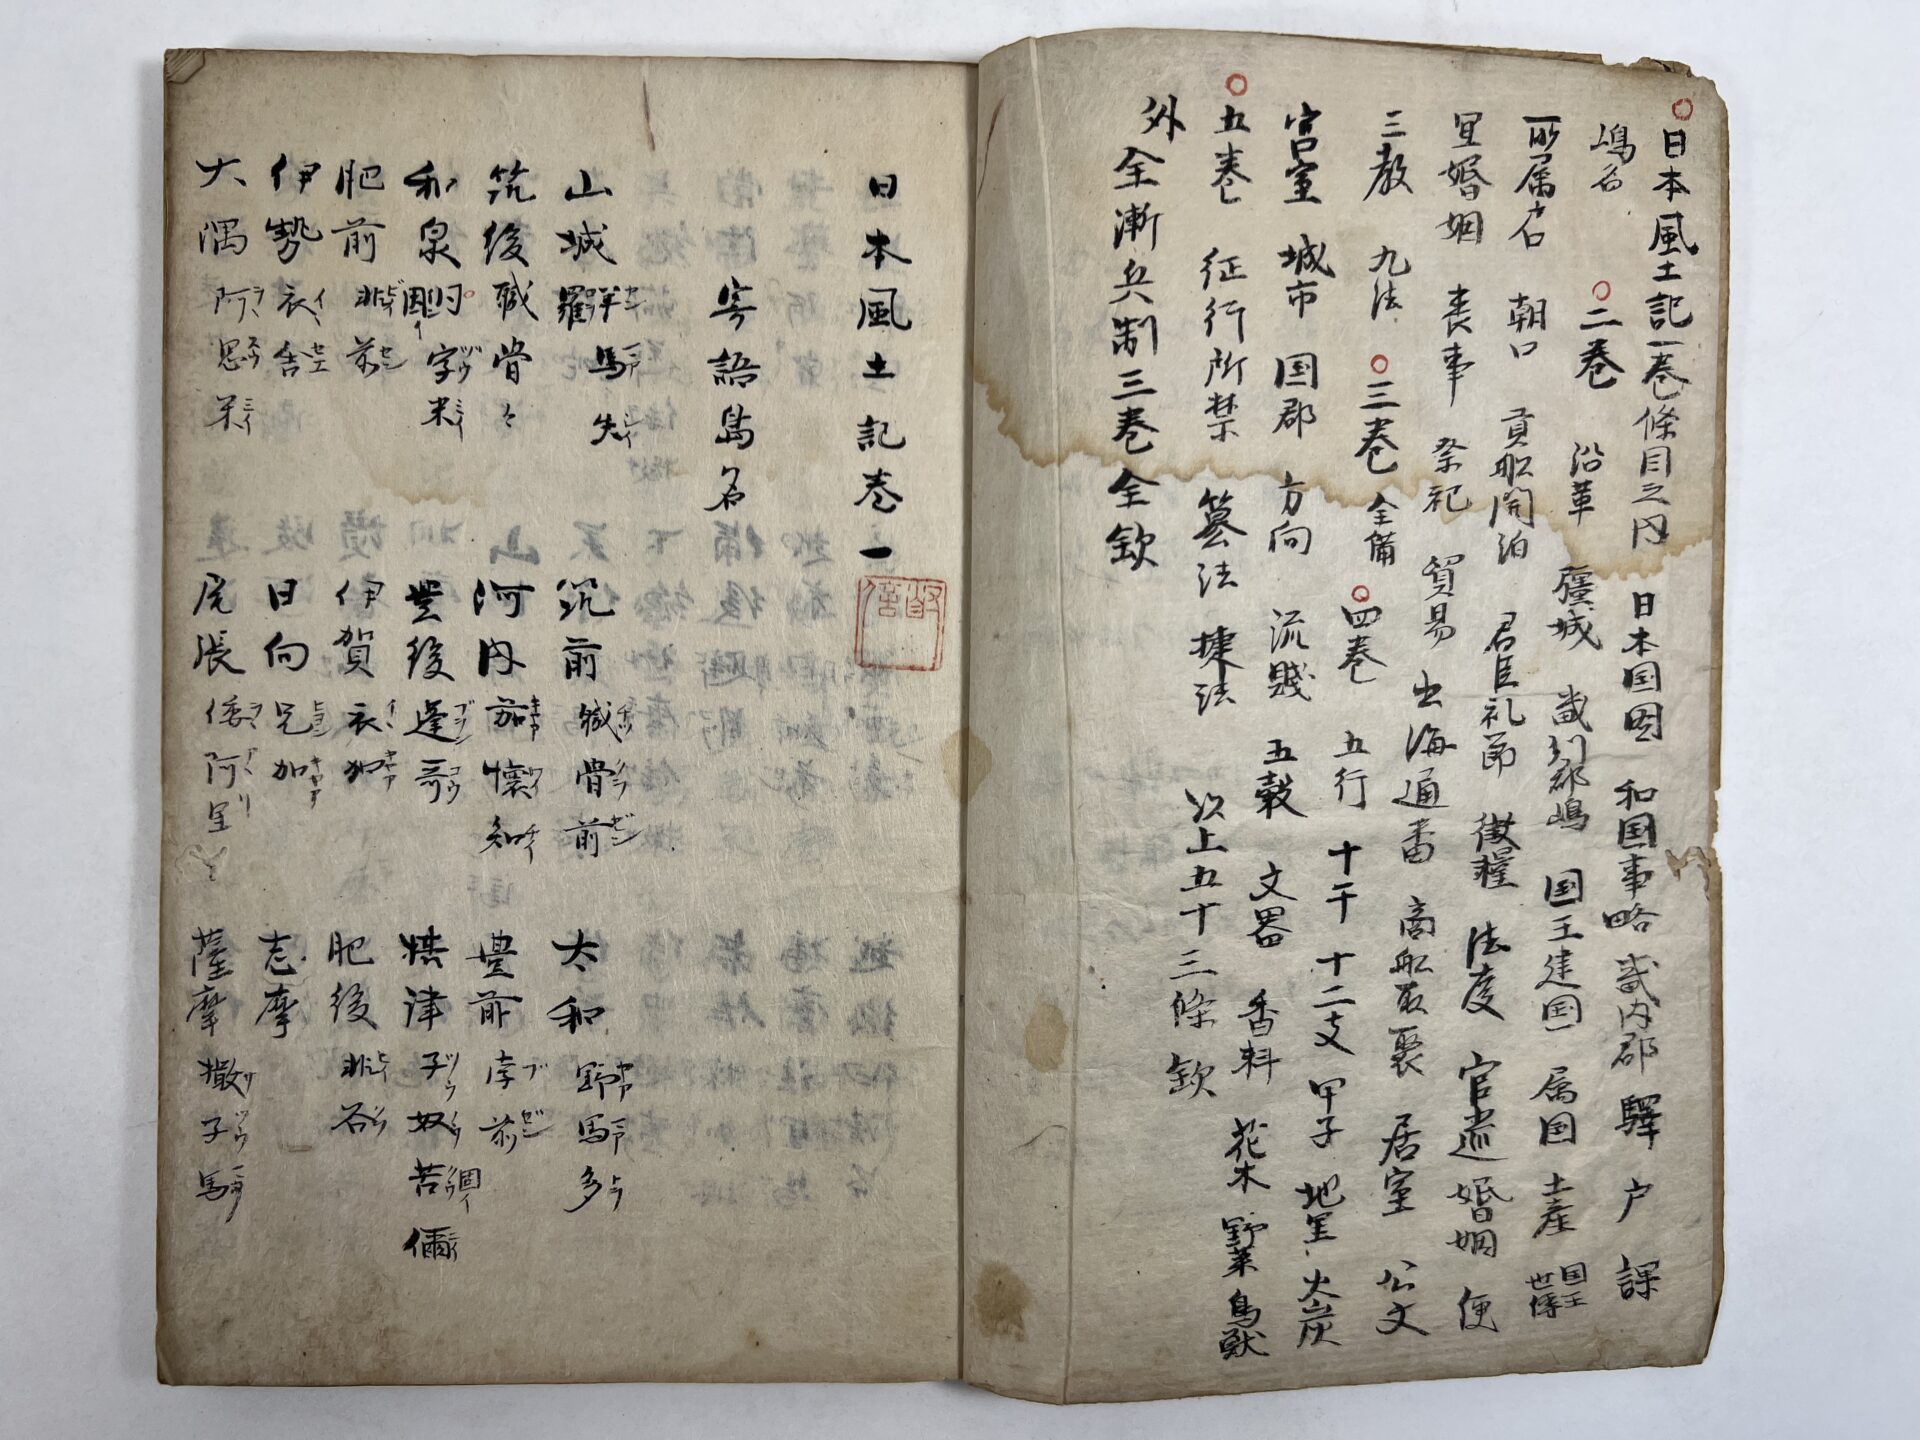 日本風土記一巻條目之内　日本国図　和国事略　畿内郡　驛　戸　課
嶋名　二巻　沿革　彊城　畿州郡嶋　国王建国　属国　土産　国王世傳
所属戸口　朝口　貢船開泊　君臣礼節　徴糧　法度　官　婚姻　便
里婚姻　喪事　祭祀　貿易　出海通番　商船聚　居室　公文
三教　九法　三巻　全備　四巻　五行　十干　十二支　甲子　地里　火炭
宮室　城市　国郡　方向　流賤　五穀　文器　香料　花木　野菜　鳥獣
五巻　征行所禁　篡法　捷法　以上五十三條　欽
外　全漸兵制三巻全欽
日本風土記巻一
寄語島名
山城　羊羅馬失　筑前　職骨前　大和　野馬多
筑後　職骨々　河内　茄懐知　豊前　孛前
和泉　因字米　豊後　蓬哥　攝津　子奴苦儞
肥前　非前　伊賀　衣加　肥後　非谷
伊勢　衣舎　日向　兄加　志摩
大隅　阿思米　尾張　倭阿里　薩摩　撒子馬